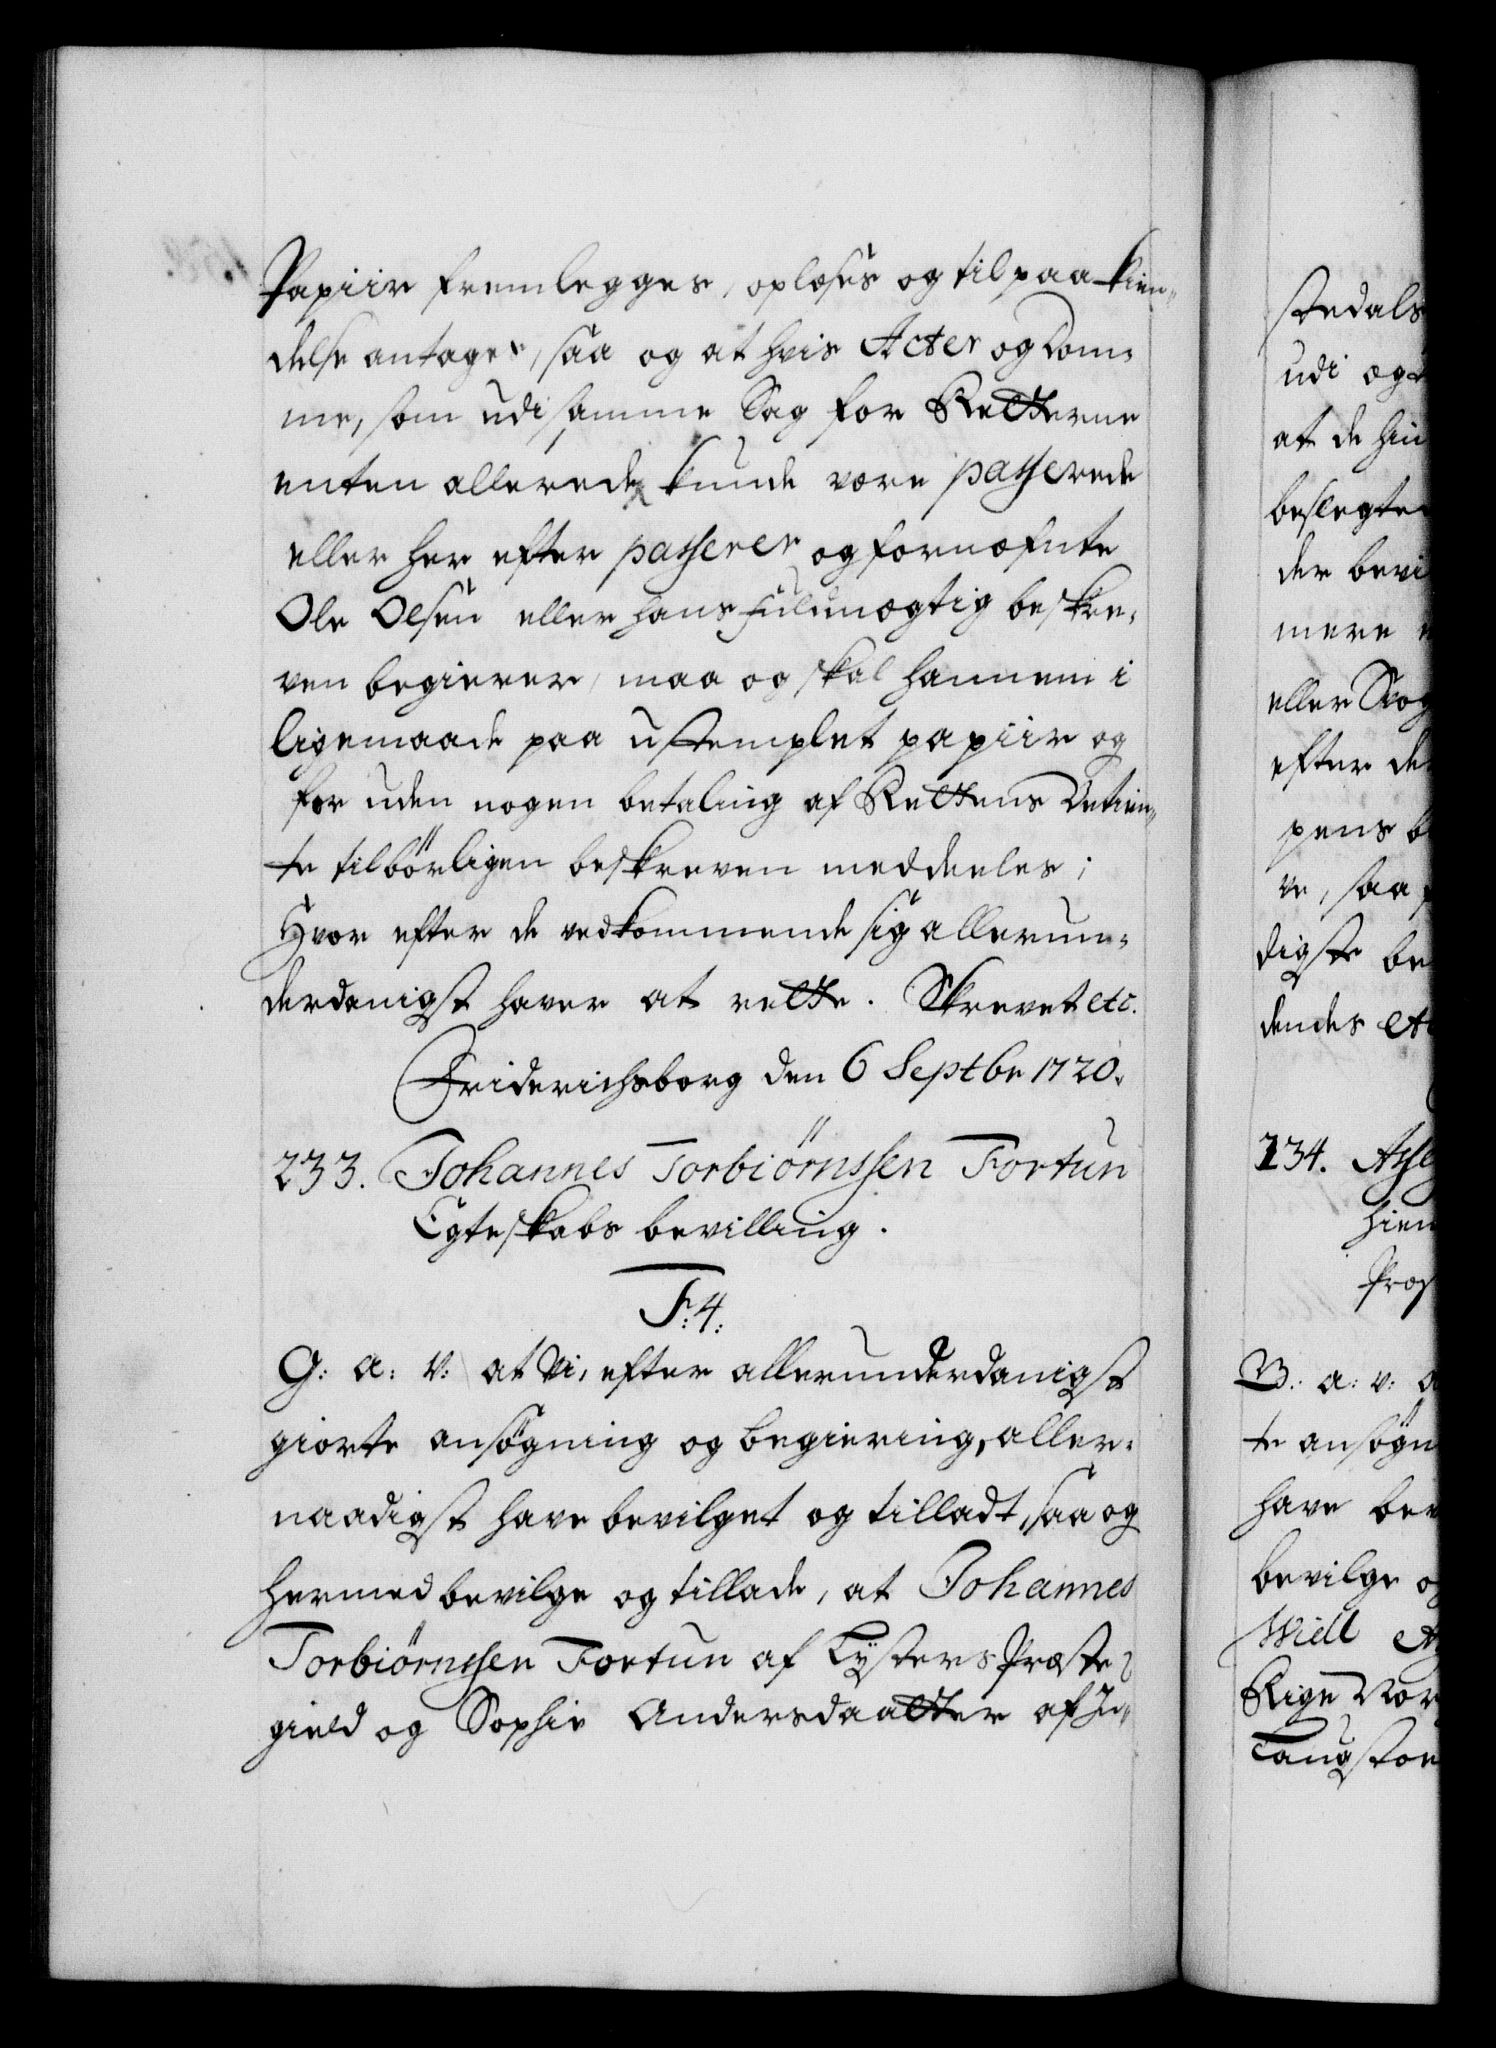 Papiir fremlegges, oplæses og til paakien-
delse antages, saa og at hvis Acter og Dom-
me, som udi samme Sag for Retterne
enten allerede kunde være passerede
eller her efter passerer og fornæfnte
Ole Olsen eller hans fuldmægtig beskre-
ven begierer, maa og skal hannem i
ligemaade paa ustemplet papiir og
for uden nogen betaling af Rettens Betien-
te tilbörligen beskreven meddeeles;
Hvor efter de vedkommende sig allerun-
derdanigst haver at rette. Skrevet etc.
Friderichsborg den 6 Septbr 1720.
233. Johannes Torbiörnssen Fortun
Egteskabs bevilling.
F: 4:
G: a: v: at Vi, efter allerunderdanigst
giorte ansögning og begiering, aller-
naadigst have bevilget og tilladt, saa og
hermed bevilge og tillade, at Johannes
Torbiörnssen Fortun af Lysters Præste-
gield og Sophie Andersdaatter af In-
stedals
udi ægt
at de hin
beslegte
der bevi
mere
eller Skog
efter de
pens b
ve, saa
digste be
dendes etc
234. Asse
hiem
Præs
B: a: v: a
te ansögn
have bev
bevilge o
Niell
Rige Nor
Laugstoe